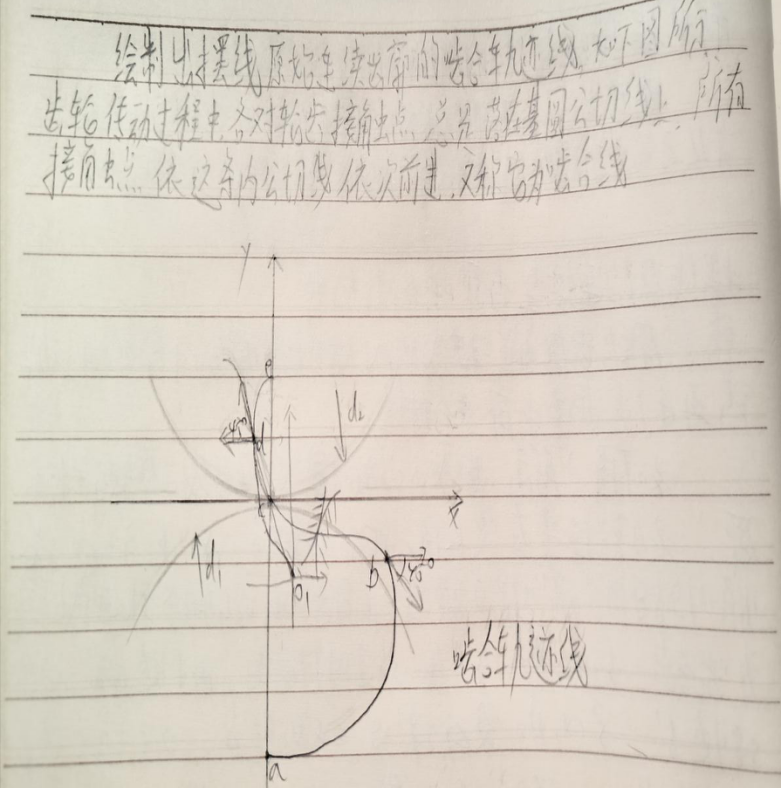 绘制出摆线原始连续齿廓的啮合轨迹线,如下图所示
齿轮传动过程中各对轮齿接触点总是落在基圆公切线上,所有
接触点依这条内公切线依次前进,又称它为啮合线
y
e
d₂
d
c
x
b
d₁
o₁
啮合轨迹线
a